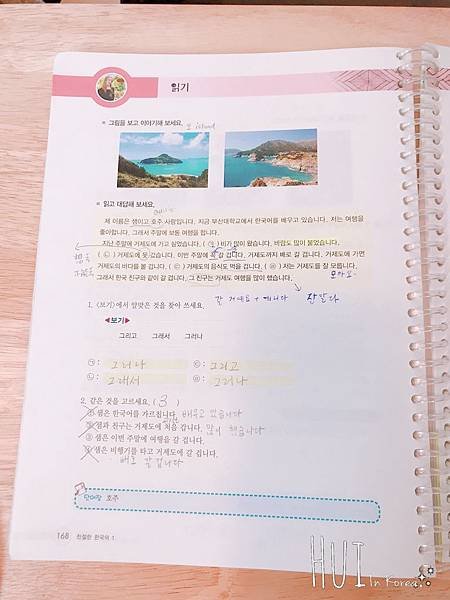 읽기
그림을 보고 이야기해 보세요. island
읽고 대답해 보세요.
제 이름은 샘이고 호주 사람입니다. 지금 부산대학교에서 한국어를 배우고 있습니다. 저는 여행을
좋아합니다. 그래서 주말에 보통 여행을 합니다.
지난 주말에 거제도에 가고 싶었습니다. ( ㉠ ) 비가 많이 왔습니다. 바람도 많이 불었습니다.
( ㉡ ) 거제도에 못 갔습니다. 이번 주말에 꼭 갈 겁니다. 거제도까지 배로 갈 겁니다. 거제도에 가면
거제도의 바다를 볼 겁니다. ( ㉢ ) 거제도의 음식도 먹을 겁니다. ( ㉣ ) 저는 거제도를 잘 모릅니다.
그래서 한국 친구와 같이 갈 겁니다. 그 친구는 거제도 여행을 많이 했습니다.
모르다
1. <보기>에서 알맞은 것을 찾아 쓰세요.
◀보기▶
그리고 그래서 그러나
㉠ : 그러나 ㉢ : 그리고
㉡ : 그래서 ㉣ : 그러나
2. 같은 것을 고르세요. ( 3 )
① 샘은 한국어를 가르칩니다. 배우고 있습니다
② 샘과 친구는 거제도에 처음 갑니다. 많이 했습니다
③ 샘은 이번 주말에 여행을 갈 겁니다.
④ 샘은 비행기를 타고 거제도에 갈 겁니다.
배로 갈 겁니다
단어장 호주
168 친절한 한국어 1
HUI
In Korea